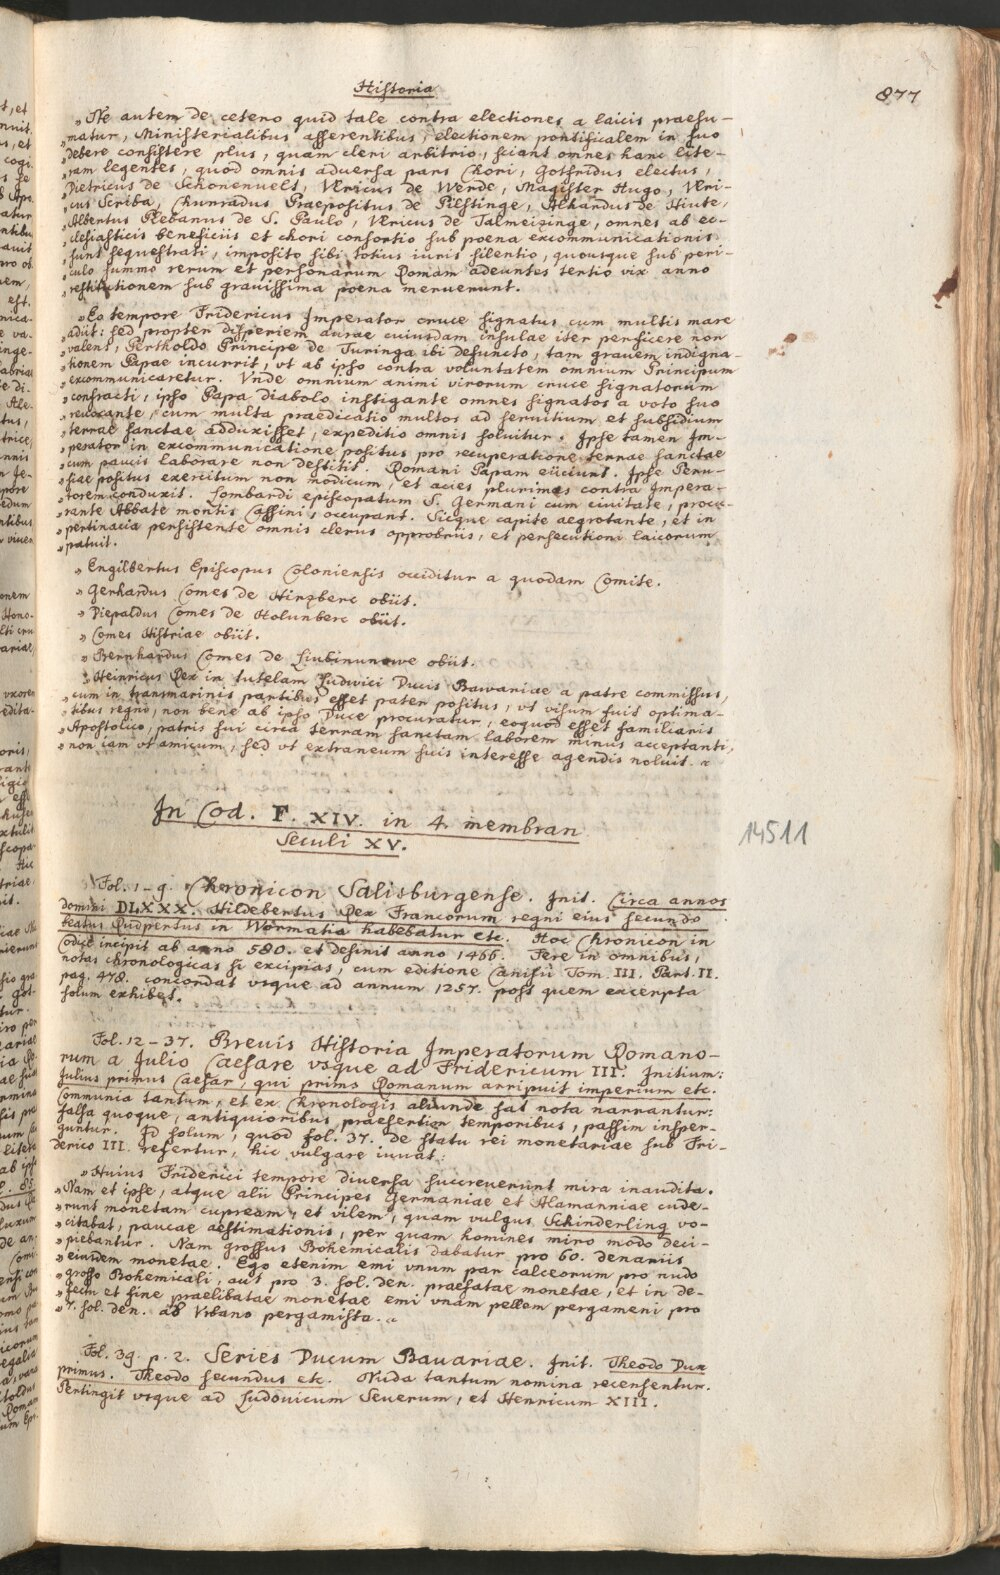 Historia
877
„Ne autem de cetero quid tale contra electiones a laicis praesu-
„matur, Ministerialibus asserentibus, electionem pontificalem in suo
„debere consistere plus, quam cleri arbitrio, sciant omnes hanc lite-
„ram legentes, quod omnis adversa pars Chori, Gothfridus electus,
„Dietricus de Schonenvels, Vlricus de Werde, Magister Hugo, Vlri-
„cus Scriba, Chunradus Praepositus de Pilstinge, Alhardus de Hiute,
„Albertus Plebanus de S. Paulo, Vlricus de Talmeizinge, omnes ab ec-
„clesiasticis beneficiis et chori consortio sub poena excommunicationis
„sunt sequestrati, imposito sibi totius iuris silentio, quousque sub peri-
„culo summo rerum et personarum Romam adeuntes tertio vix anno
„restitutionem sub grauissima poena meruerunt.
„Eo tempore Fridericus Imperator cruce signatus cum multis mare
„adiit: sed propter disperiem aurae cuiusdam insulae iter perficere non
„valens, Pertholdo Principe de Turinga ibi defuncto, tam grauem indigna-
„tionem Papae incurrit, vt ab ipso contra voluntatem omnium Principum
„excommunicaretur. Vnde omnium animi virorum cruce signatorum
„confracti, ipso Papa diabolo instigante omnes signatos a voto suo
„reuocante, cum multa praedicatio multos ad seruitium et subsidium
„terrae sanctae adduxisset, expeditio omnis soluitur. Ipse tamen Im-
„perator in excommunicatione positus pro recuperatione terrae sanctae
„cum paucis laborare non destitit. Romani Papam eiiciunt. Ipse Peru-
„siae positus exercitum non modicum, et acies plurimas contra Impera-
„torem conduxit. Lombardi episcopatum S. Germani cum ciuitate, procu-
„rante Abbate montis Cassini, occupant. Sicque capite aegrotante, et in
„pertinacia persistente omnis clerus opprobriis, et persecutioni laicorum
„patuit.
„Engilbertus Episcopus Coloniensis occiditur a quodam Comite.
„Gerhardus Comes de Hirzberc obiit.
„Diepaldus Comes de Holunberc obiit.
„Comes Histriae obiit.
„Bernhardus Comes de Liubinunowe obiit.
„Heinricus Rex in tutelam Ludwici Ducis Bawariae a patre commissus,
„cum in transmarinis partibus esset pater positus, vt visum fuit optima-
„tibus regni, non bene ab ipso Duce procuratur, eoquod esset familiaris
„Apostolico, patris sui circa terram sanctam laborem minus acceptanti,
„non iam vt amicum, sed vt extraneum suis interesse agendis noluit. „
In Cod. F. XIV. in 4. membran
Seculi XV.
14511
Fol. 1-9. Chronicon Salisburgense. Init. Circa annos
domini DLXXX. Hildebertus Rex Francorum regni eius secundo
beatus Rudpertus in Wormatia habebatur etc. Hoc Chronicon in
Codice incipit ab anno 580. et definit anno 1466. Fere in omnibus,
notas chronologicas si excipias, cum editione Canisii Tom. III. Part. II.
pag. 478. concordat vsque ad annum 1257. post quem excerpta
solum exhibet.
Fol. 12-37. Breuis Historia Imperatorum Romano-
rum a Julio Caesare vsque ad Fridericum III. Initium:
Julius primus Caesar, qui primo Romanum arripuit imperium etc.
Communia tantum, et ex Chronologis aliunde sat nota narrantur:
falsa quoque, antiquioribus praesertim temporibus, passim insper-
guntur. Id solum, quod fol. 37. de statu rei monetariae sub Fri-
derico III. refertur, hic vulgare iuuat:
„Huius Friderici tempore diversa succreverunt mira inaudita.
„Nam et ipse, atque alii Principes Germaniae et Alamanniae cude-
„runt monetam cupream, et vilem, quam vulgus Schinderling vo-
„citabat, paucae aestimationis, per quam homines miro modo deci-
„piebantur. Nam grossus Bohemicalis dabatur pro 60. denariis
„eiusdem monetae. Ego etenim emi vnum par calceorum pro nudo
„grosso Bohemicali, aut pro 3. sol. den. praefatae monetae, et in de-
„fectu et fine praelibatae monetae emi vnam pellem pergameni pro
„7. sol. den. ab Vrbano pergamista. „
Fol. 39. p. 2. Series Ducum Bauariae. Init. Theodo Dux
primus. Theodo secundus etc. Nuda tantum nomina recensentur.
Pertingit vsque ad Ludouicum Seuerum, et Henricum XIII.